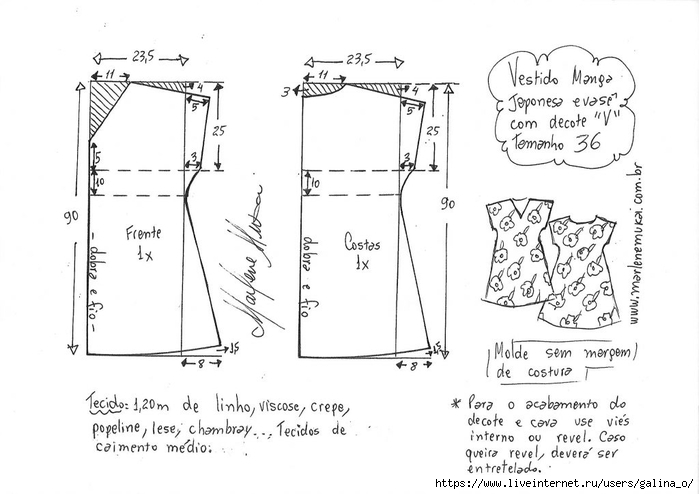 23,5
11
4
5
25
5
3
10
90
Frente
1x
- dobra e fio -
1,5
8
Marlene Mukai
23,5
11
3
4
5
25
3
10
90
Costas
1x
dobra e fio
1,5
8
Vestido Manga
Japonesa evasê
com decote "V"
Tamanho 36
www.marlenemukai.com.br
Molde sem margem
de costura
Tecido: 1,20m de linho, viscose, crepe,
popeline, lese, chambray... Tecidos de
caimento médio.
* Para o acabamento do
decote e cava use viés
interno ou revel. Caso
queira revel, deverá ser
entretelado.
https://www.liveinternet.ru/users/galina_o/